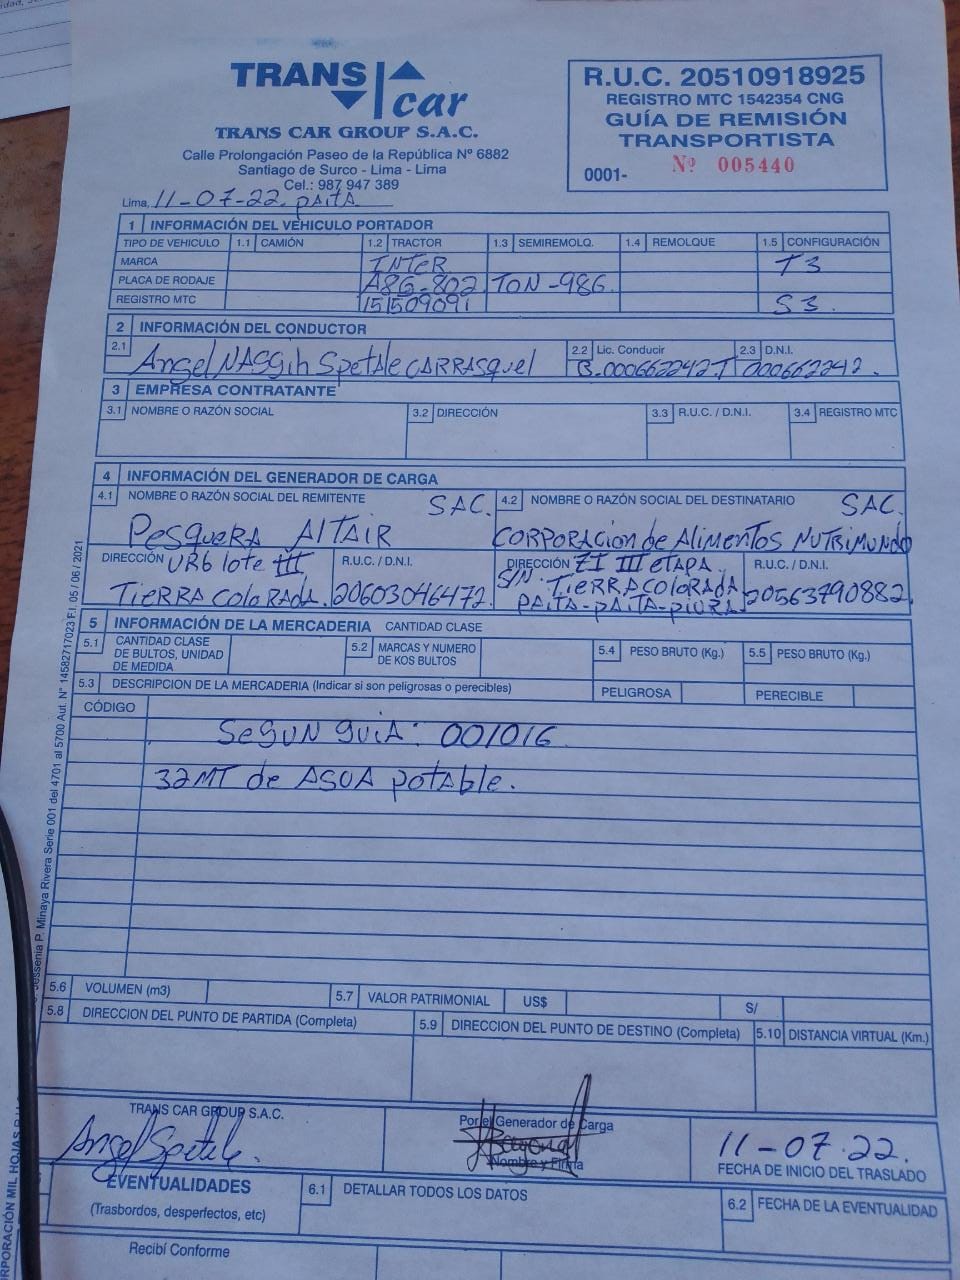 TRANS car
TRANS CAR GROUP S.A.C.
Calle Prolongación Paseo de la República Nº 6882
Santiago de Surco - Lima - Lima
Cel.: 987 947 389
R.U.C. 20510918925
REGISTRO MTC 1542354 CNG
GUÍA DE REMISIÓN
TRANSPORTISTA
0001- Nº 005440
Lima, 11-07-22. PAITA
1 INFORMACIÓN DEL VEHICULO PORTADOR
TIPO DE VEHICULO 1.1 CAMIÓN 1.2 TRACTOR 1.3 SEMIREMOLQ. 1.4 REMOLQUE 1.5 CONFIGURACIÓN
MARCA INTER T3
PLACA DE RODAJE A8G-802 TON-986
REGISTRO MTC 151509091 S3
2 INFORMACIÓN DEL CONDUCTOR
2.1 Angel NASSih Spetale CARRASquel 2.2 Lic. Conducir B.000662242-T 2.3 D.N.I. 000662242.
3 EMPRESA CONTRATANTE
3.1 NOMBRE O RAZÓN SOCIAL 3.2 DIRECCIÓN 3.3 R.U.C. / D.N.I. 3.4 REGISTRO MTC
4 INFORMACIÓN DEL GENERADOR DE CARGA
4.1 NOMBRE O RAZÓN SOCIAL DEL REMITENTE SAC. 4.2 NOMBRE O RAZÓN SOCIAL DEL DESTINATARIO SAC.
PesqueRA AlTAIR CORPORAcion de Alimentos NUTRIMUNDO
DIRECCIÓN URB lote III R.U.C. / D.N.I. DIRECCIÓN ZI III eTAPA. R.U.C. / D.N.I.
TieRRA coloRAda. 20603046472 S/N. TieRRA coloRADA 20563790882
PAITA-PAITA-PIURA
5 INFORMACIÓN DE LA MERCADERIA CANTIDAD CLASE
5.1 CANTIDAD CLASE DE BULTOS, UNIDAD DE MEDIDA 5.2 MARCAS Y NUMERO DE KOS BULTOS 5.4 PESO BRUTO (Kg.) 5.5 PESO BRUTO (Kg.)
5.3 DESCRIPCION DE LA MERCADERIA (Indicar si son peligrosas o perecibles) PELIGROSA PERECIBLE
CÓDIGO
SeGUN guiA: 001016
32MT de AGUA potable.
5.6 VOLUMEN (m3) 5.7 VALOR PATRIMONIAL US$ S/
5.8 DIRECCION DEL PUNTO DE PARTIDA (Completa) 5.9 DIRECCION DEL PUNTO DE DESTINO (Completa) 5.10 DISTANCIA VIRTUAL (Km.)
TRANS CAR GROUP S.A.C. Por el Generador de Carga 11-07.22.
Angel Spetale. Nombre y Firma FECHA DE INICIO DEL TRASLADO
EVENTUALIDADES 6.1 DETALLAR TODOS LOS DATOS 6.2 FECHA DE LA EVENTUALIDAD
(Trasbordos, desperfectos, etc)
Recibí Conforme
Jessenia P. Minaya Rivera Serie 001 del 4701 al 5700 Aut. N° 14582717023 F.I. 05 / 06 / 2021